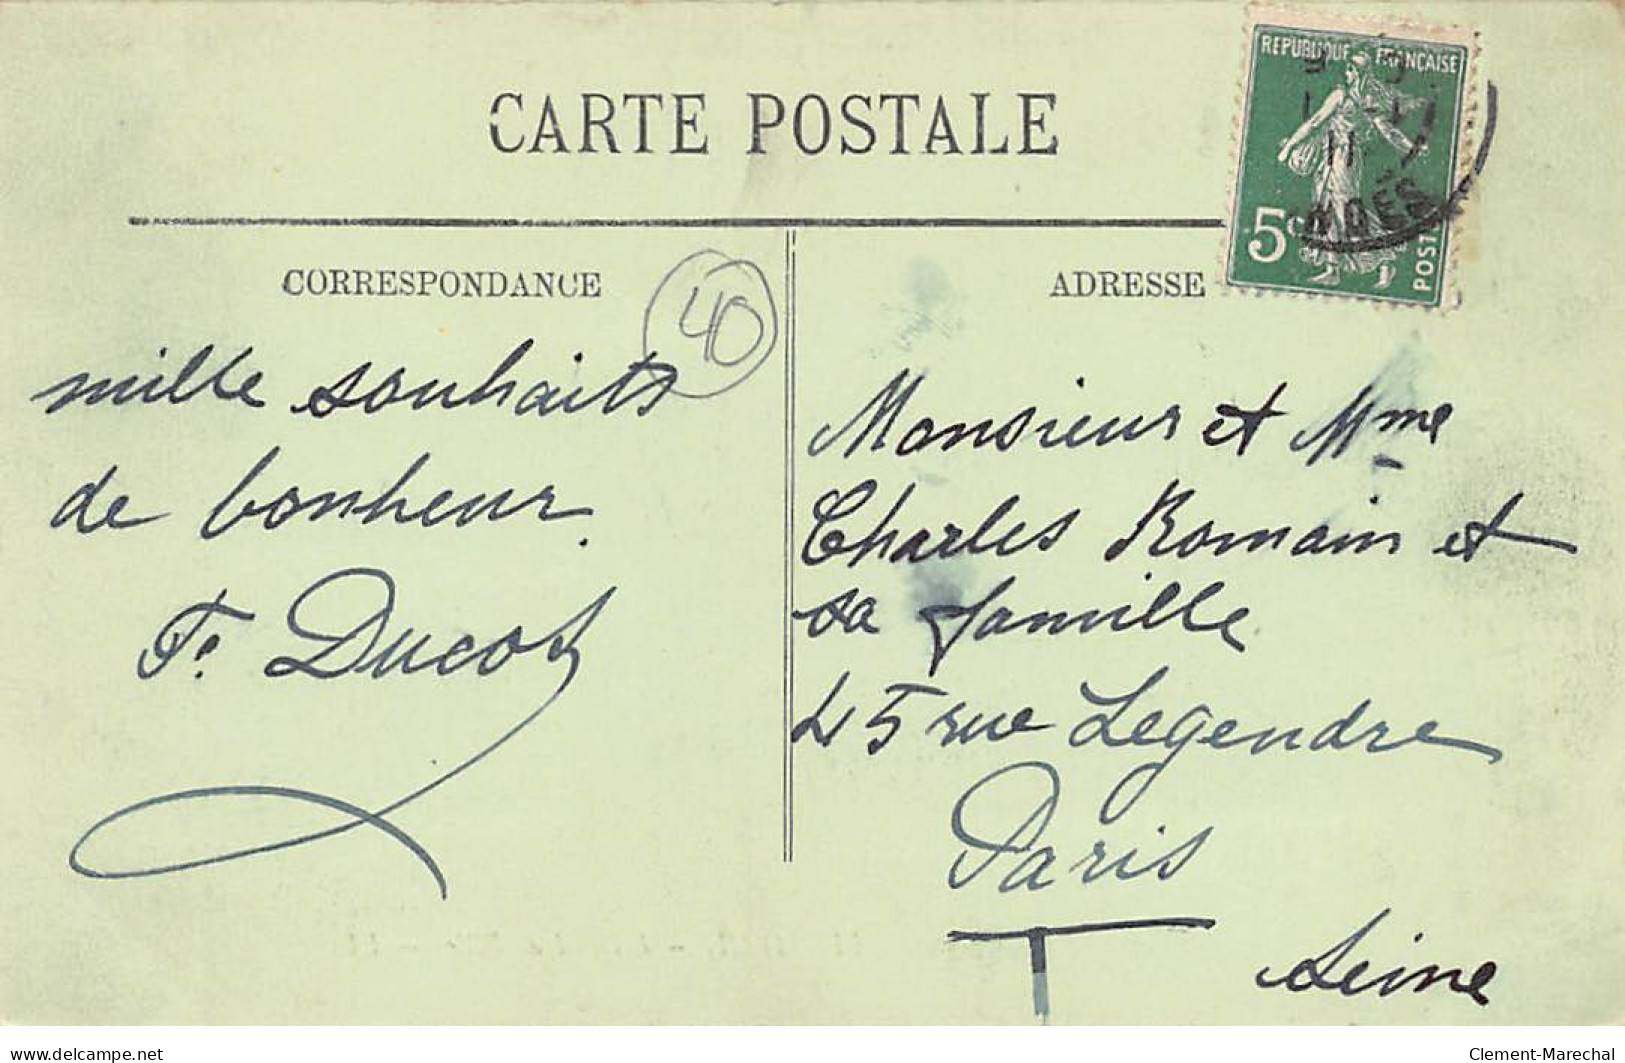 CARTE POSTALE
RÉPUBLIQUE FRANÇAISE
5c
POSTES
CORRESPONDANCE
40
mille souhaits
de bonheur.
F. Ducos
ADRESSE
Monsieur et Mme
Charles Romain et
sa famille
45 rue Legendre
Paris
Seine
delcampe.net
Clement-Marechal